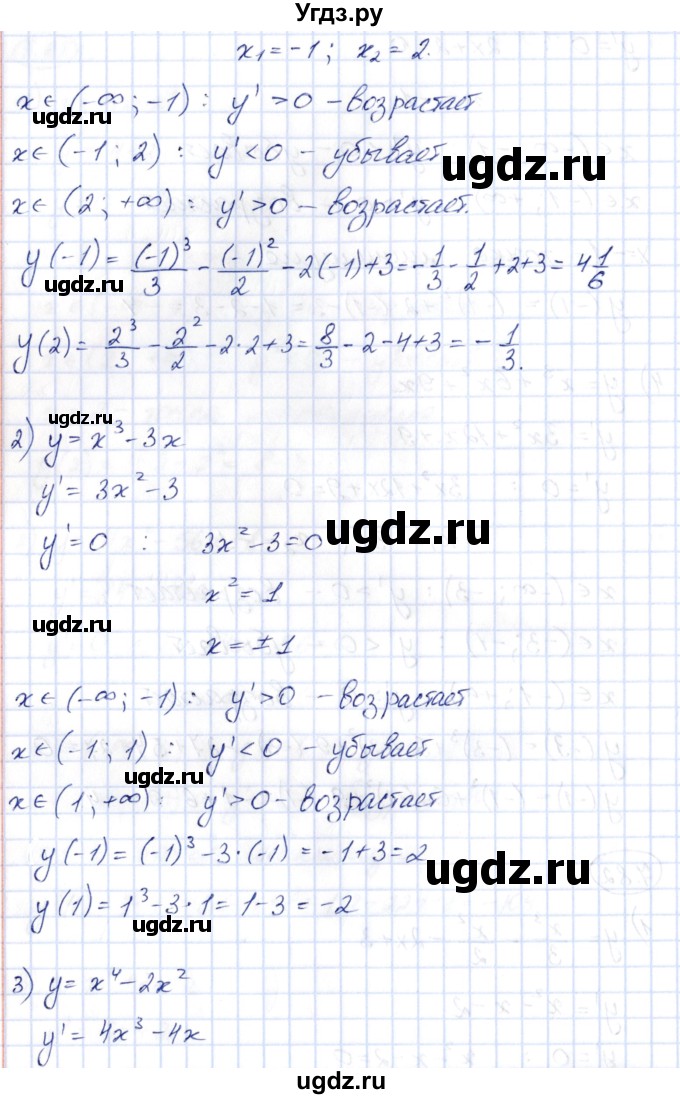 Угдз.ру
x₁ = -1 ; x₂ = 2.
x ∈ (-∞ ; -1) : y' > 0 - возрастает
ugdz.ru
x ∈ (-1 ; 2) : y' < 0 - убывает
ugdz.ru
x ∈ (2 ; +∞) : y' > 0 - возрастает.
y(-1) = (-1)³/3 - (-1)²/2 - 2(-1)+3 = -1/3 - 1/2 + 2 + 3 = 4 1/6
y(2) = 2³/3 - 2²/2 - 2·2 + 3 = 8/3 - 2 - 4 + 3 = -1/3.
ugdz.ru
2) y = x³ - 3x
y' = 3x² - 3
y' = 0 : 3x² - 3 = 0
ugdz.ru
x² = 1
ugdz.ru
x = ± 1
x ∈ (-∞ ; -1) : y' > 0 - возрастает
x ∈ (-1 ; 1) : y' < 0 - убывает
ugdz.ru
x ∈ (1 ; +∞) : y' > 0 - возрастает
y(-1) = (-1)³ - 3·(-1) = -1+3 = 2
ugdz.ru
y(1) = 1³ - 3·1 = 1-3 = -2
ugdz.ru
3) y = x⁴ - 2x²
y' = 4x³ - 4x
ugdz.ru